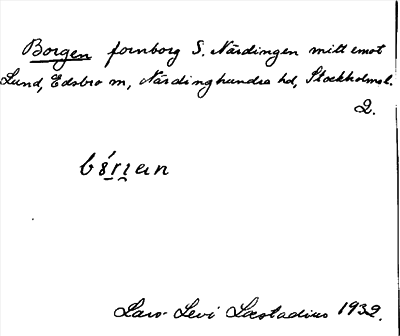 Borgen fornborg S. Närdingen mitt emot
Lund, Edsbro sn, Närdinghundra hd, Stockholms l.
2.
Lars-Levi Læstadius 1932.